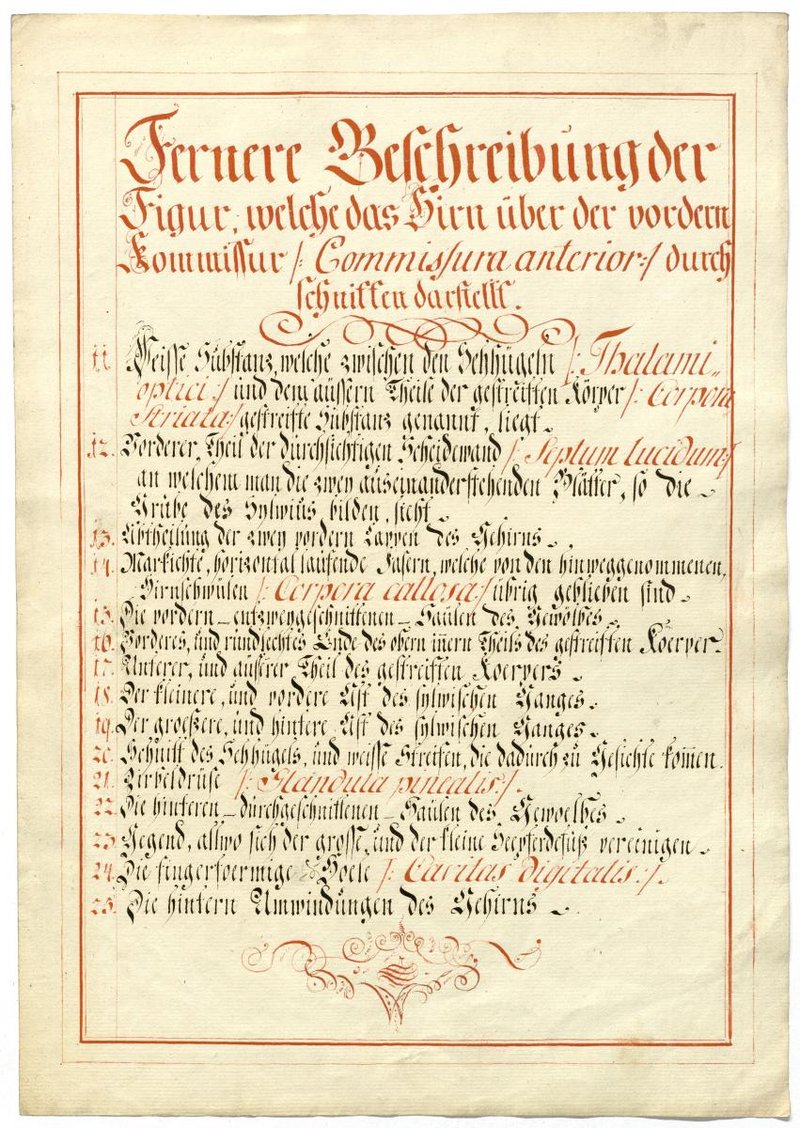 Fernere Beschreibung der
Figur, welche das Hirn über der vordern
Kommissur /: Commissura anterior :/ durch
schnitten darstellt.
11. Weisse Substanz, welche zwischen den Sehhügeln /: Thalami
optici :/ und dem äussern Theile der gestreiften Körper /: Corpora
Striata :/ gestreifte Substanz genannt, liegt.
12. Vorderer Theil der durchsichtigen Scheidewand /: Septum lucidum :/
an welchem man die zwey auseinanderstehenden Blätter, so die
Grube des Sylvius bilden, sieht.
13. Abtheilung der zwey vordern Lappen des Gehirns.
14. Markichte, horizontal laufende Fasern, welche von den hinweggenommenen,
Hirnschwülen /: Corpora callosa :/ übrig geblieben sind.
15. Die vordern – entzweygeschnittenen – Säulen des Gewölbes.
16. Vorderes, und rundlechtes Ende des obern innern Theils des gestreiften Koerper.
17. Unterer, und äusserer Theil des gestreiften Koerpers.
18. Der kleinere, und vordere Ast des sylwischen Ganges.
19. Der groeßere, und hintere Ast des sylwischen Ganges.
20. Schnitt des Sehhügels, und weisse Streifen, die dadurch zu Gesichte kom̄en.
21. Zirbeldrüse /: Glandula pinealis :/.
22. Die hinteren – durchgeschnittenen – Säulen des Gewoelbes.
23. Gegend, allwo sich der grosse, und der kleine Seepferdefuß vereinigen.
24. Die fingerfoermige Hoele /: Cavitas digitalis :/.
25. Die hintern Umwindungen des Gehirns.